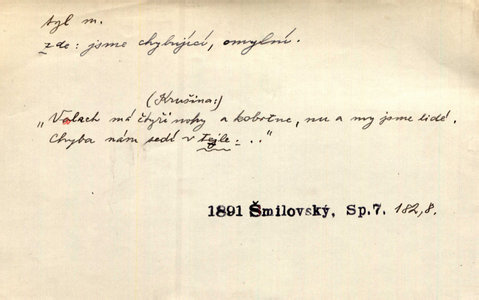 tyl m.
zde: jsme chybující, omylní.
(Krušina:)
„Valach má čtyři nohy a kobrtne, nu a my jsme lidé.
Chyba nám sedí v tejle: . ."
1891 Šmilovský, Sp.7. 182,8.